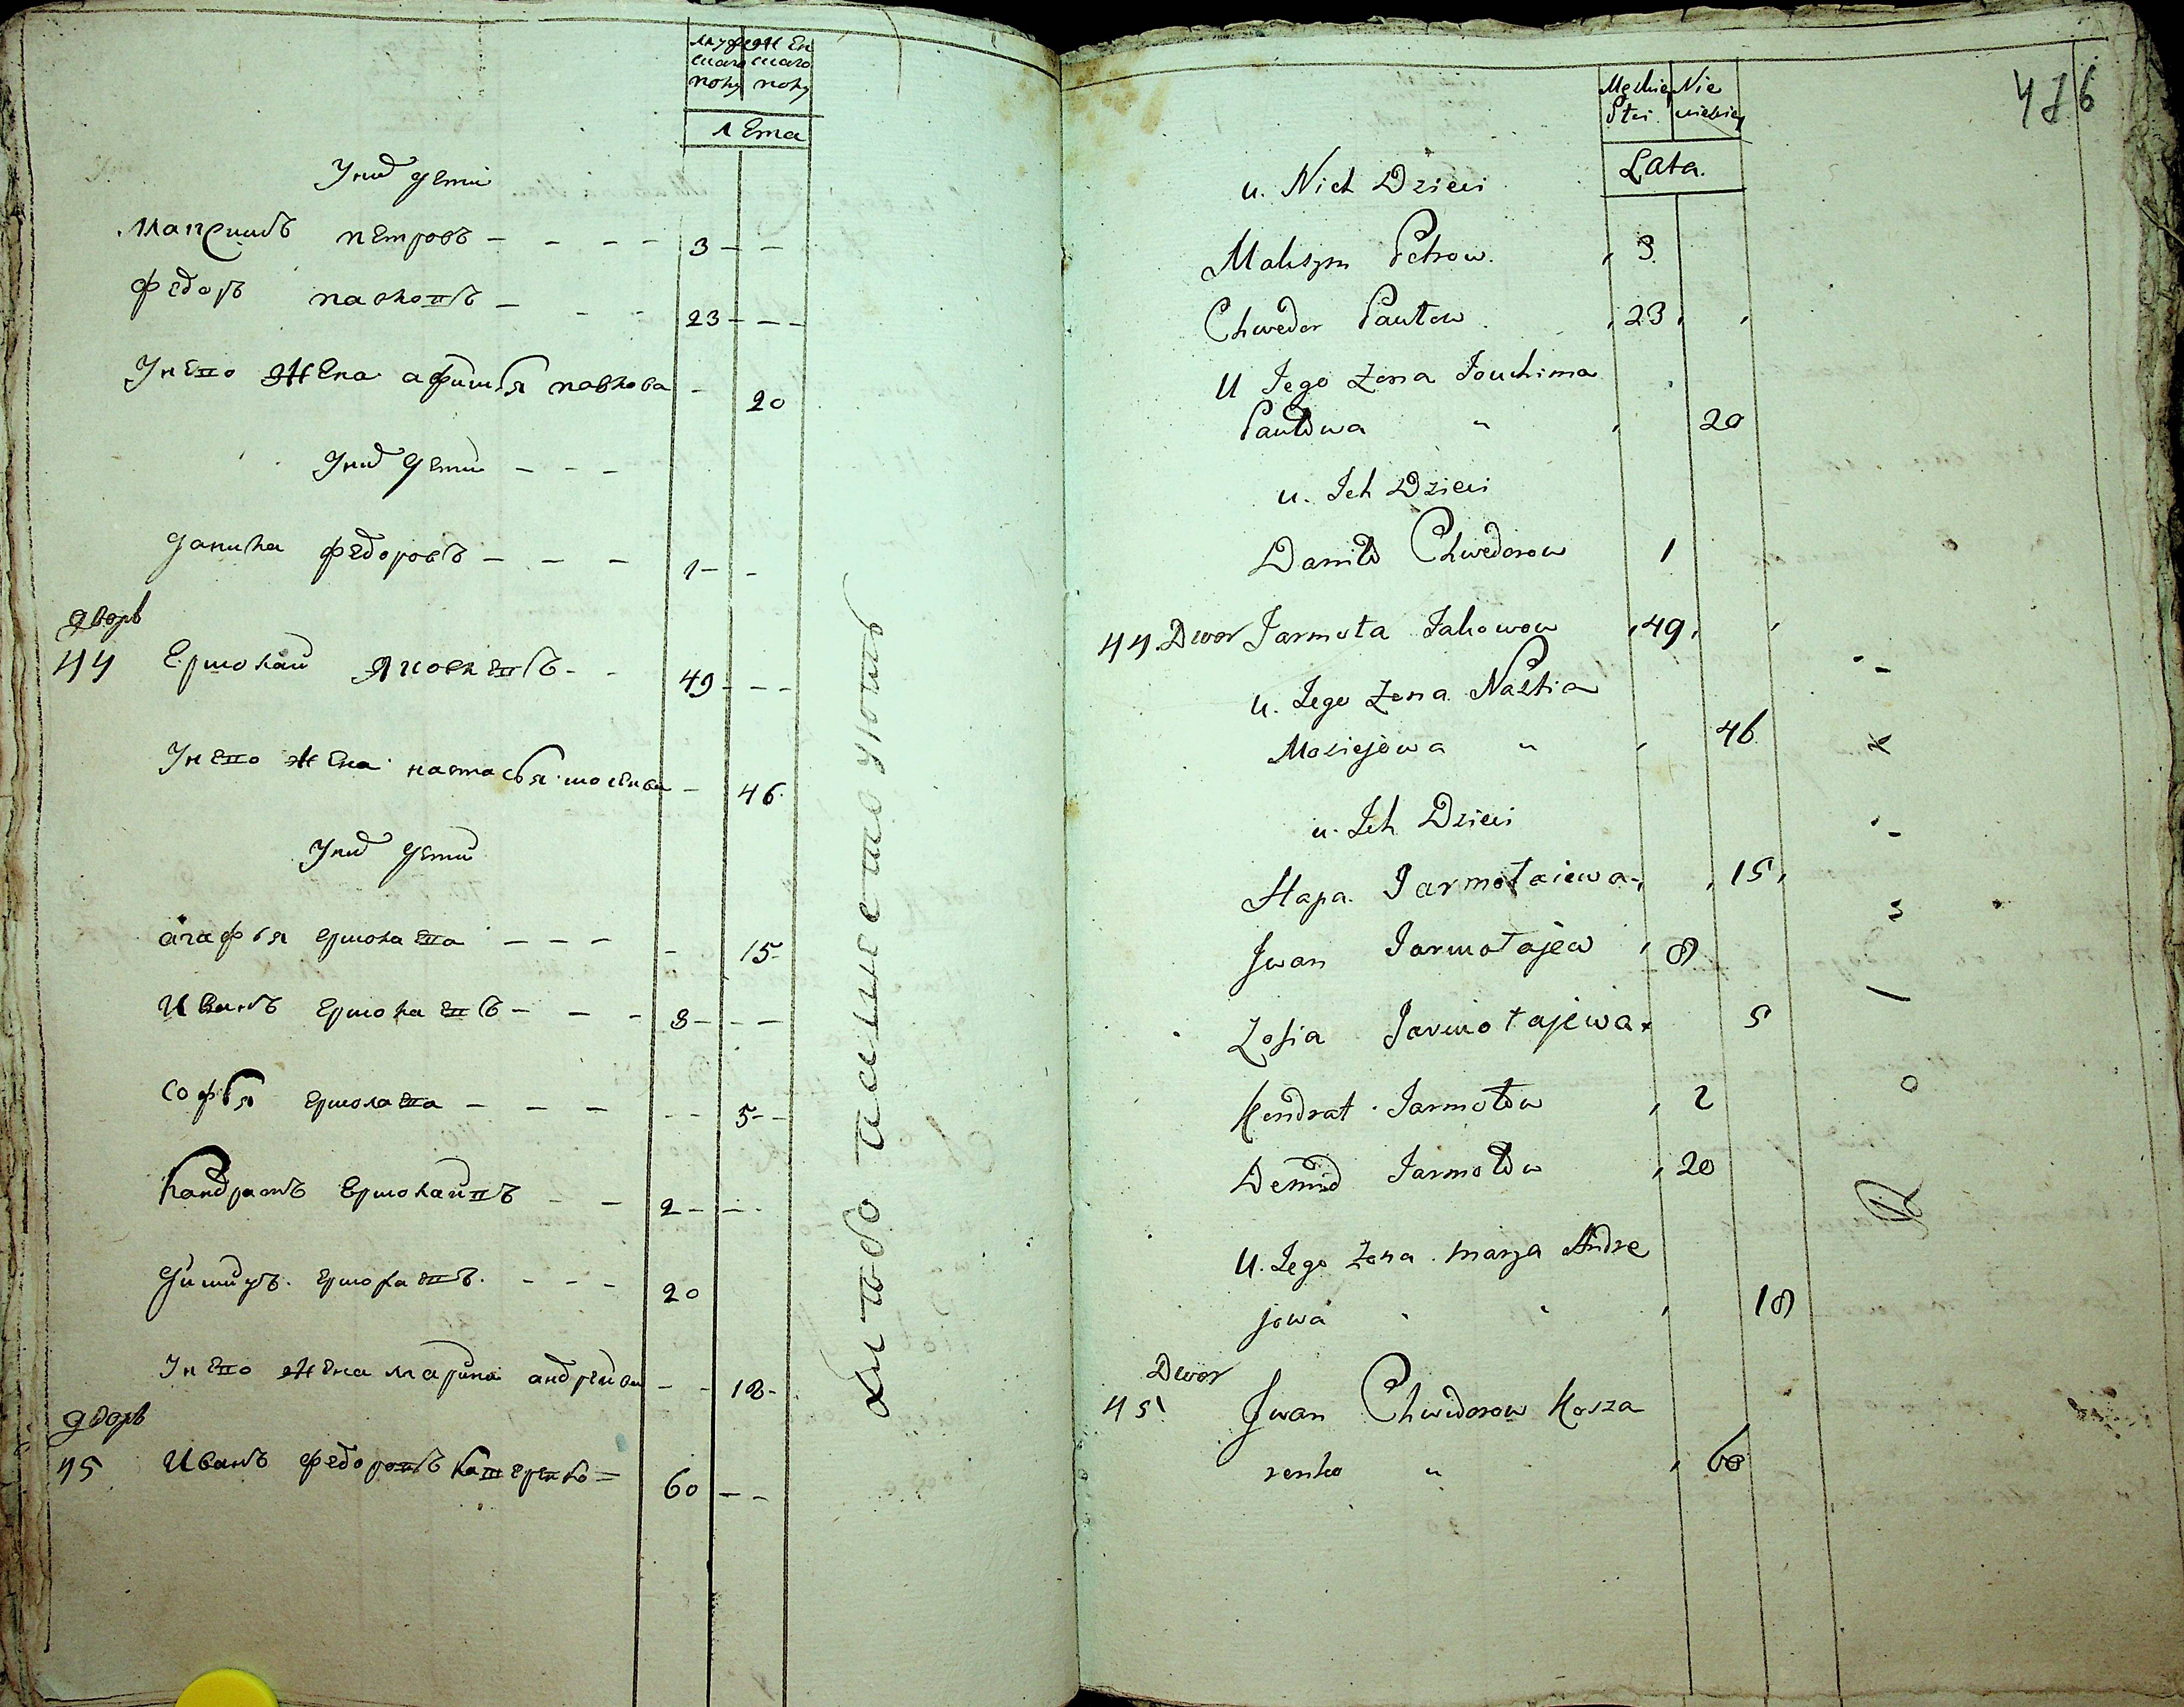 мужеска жен
скаго
полу полу
Лета
У них дети
Максимъ петровъ - - - - 3 - -
федоръ павловъ - - - 23 - - -
У него жена афимья павлова - 20
У них дети - - -
данила федоровъ - - - 1 - -
дворъ
44 Ермолай яковлевъ - - 49 - - -
У него жена настасья мосеива - 46
У них дети
агафья ермолаева - - - - 15 -
Иванъ ермолаевъ - - - 8 - - -
софья ермолаева - - - - - 5 - -
кандратъ ермолаивъ - - 2 - - -
димидъ ермолаевъ - - - 20
У него жена марина андреива - - 18 -
дворъ
45 Иванъ федоровъ кашеренко 60 - -
Męskiey Nie
Płci wieskiey
476
Lata.
u. Nich Dzieci
Maksym Petrow. 3
Chwedor Pawłow 23
U Jego Zona Jouchima
Pawłowa " 20
u. Ich Dzieci
Daniło Chwedorow 1
44. Dwor Jarmoła Jakowow 49
u. Jego Zona Nastia
Mosiejowa " 46
u. Ich Dzieci
Hapa. Jarmołaiewa 15
Jwan Jarmołajew 8
Zofia Jarmołajewa 5
Kondrat Jarmołow 2
Demid Jarmołow 20
U. Jego Zona marya Andre
jowa 18
Dwor
45 Jwan Chwedorow Kosza
renko " 60